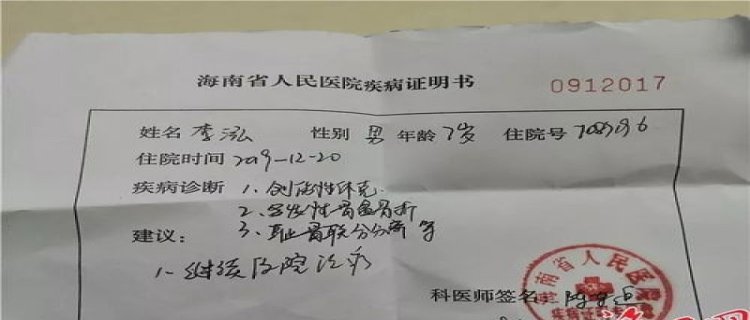 海南省人民医院疾病证明书 0912017
姓名 李泓 性别 男 年龄 7岁 住院号
住院时间 2019-12-20
疾病诊断 1、创伤性休克
2、多发性骨盆骨折
建议: 3、耻骨联合分离 等
1、继续住院治疗
海南省人民医院
科医师签名:
疾病证明